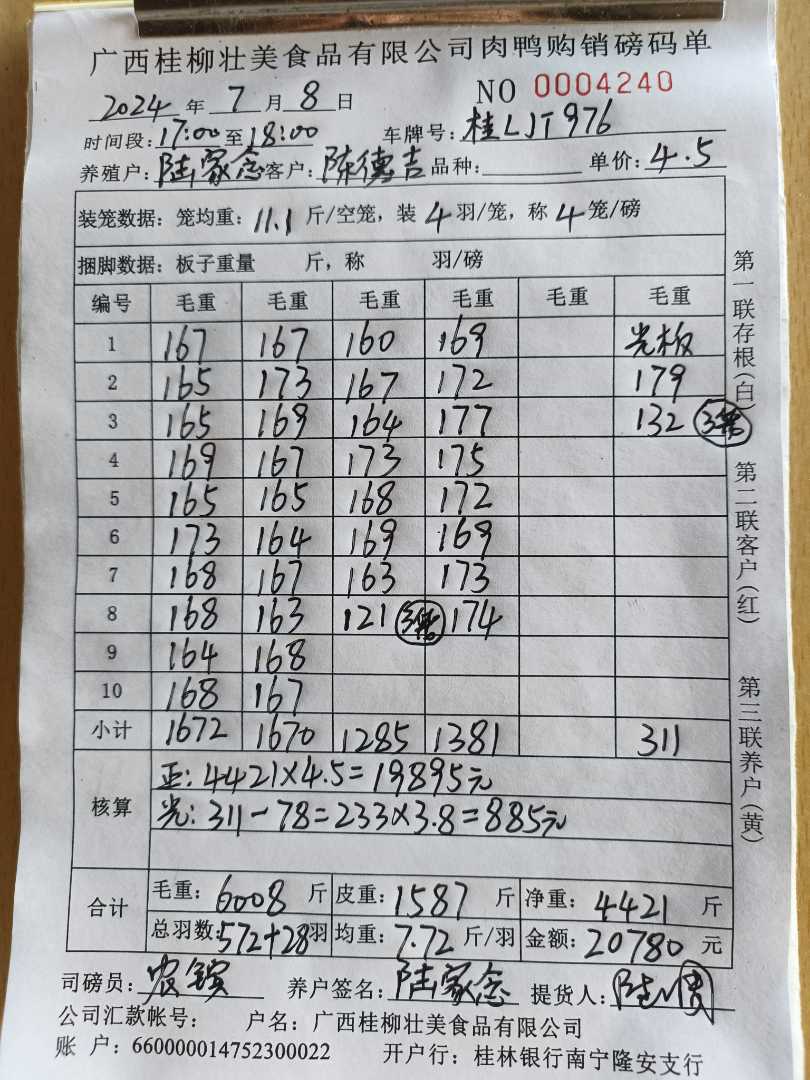 广西桂柳壮美食品有限公司肉鸭购销磅码单
NO 0004240
2024 年 7 月 8 日
时间段: 17:00 至 18:00 车牌号: 桂LJT976
养殖户: 陆家念 客户: 陈德吉 品种: 单价: 4.5
装笼数据: 笼均重: 11.1 斤/空笼, 装 4 羽/笼, 称 4 笼/磅
捆脚数据: 板子重量 斤, 称 羽/磅
编号 毛重 毛重 毛重 毛重 毛重 毛重
1 167 167 160 169 光板
2 165 173 167 172 179
3 165 169 164 177 132 3笼
4 169 167 173 175
5 165 165 168 172
6 173 164 169 169
7 168 167 163 173
8 168 163 121 3笼 174
9 164 168
10 168 167
小计 1672 1670 1285 1381 311
核算
正: 4421×4.5=19895元
光: 311-78=233×3.8=885元
合计
毛重: 6008 斤 皮重: 1587 斤 净重: 4421 斤
总羽数: 572+28 羽 均重: 7.72 斤/羽 金额: 20780 元
司磅员: 农镔 养户签名: 陆家念 提货人: 陆
公司汇款帐号: 户名: 广西桂柳壮美食品有限公司
账 户: 660000014752300022 开户行: 桂林银行南宁隆安支行
第一联存根(白)
第二联客户(红)
第三联养户(黄)